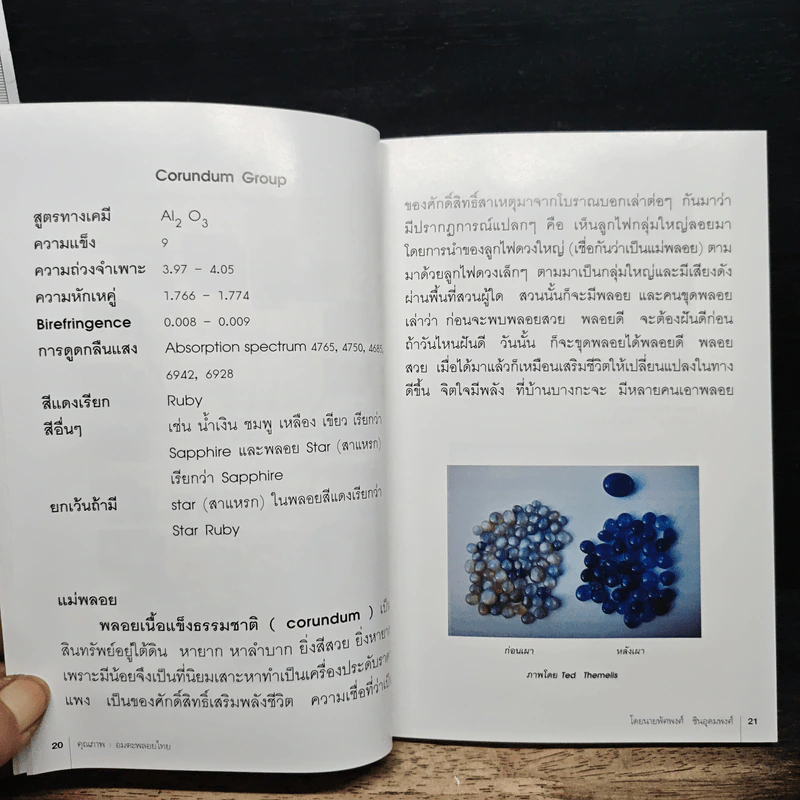 Corundum Group
สูตรทางเคมี Al2 O3
ความแข็ง 9
ความถ่วงจำเพาะ 3.97 – 4.05
ความหักเหคู่ 1.766 – 1.774
Birefringence 0.008 – 0.009
การดูดกลืนแสง Absorption spectrum 4765, 4750, 4685,
6942, 6928
สีแดงเรียก Ruby
สีอื่นๆ เช่น น้ำเงิน ชมพู เหลือง เขียว เรียกว่า
Sapphire และพลอย Star (สาแหรก)
เรียกว่า Sapphire
ยกเว้นถ้ามี star (สาแหรก) ในพลอยสีแดงเรียกว่า
Star Ruby
แม่พลอย
พลอยเนื้อแข็งธรรมชาติ ( corundum ) เป็น
สินทรัพย์อยู่ใต้ดิน หายาก หาลำบาก ยิ่งสีสวย ยิ่งหายาก
เพราะมีน้อยจึงเป็นที่นิยมเสาะหาทำเป็นเครื่องประดับราคา
แพง เป็นของศักดิ์สิทธิ์เสริมพลังชีวิต ความเชื่อที่ว่าเป็น
20 คุณภาพ : อมตะพลอยไทย
ของศักดิ์สิทธิ์สาเหตุมาจากโบราณบอกเล่าต่อๆ กันมาว่า
มีปรากฏการณ์แปลกๆ คือ เห็นลูกไฟกลุ่มใหญ่ลอยมา
โดยการนำของลูกไฟดวงใหญ่ (เชื่อกันว่าเป็นแม่พลอย) ตาม
มาด้วยลูกไฟดวงเล็กๆ ตามมาเป็นกลุ่มใหญ่และมีเสียงดัง
ผ่านพื้นที่สวนผู้ใด สวนนั้นก็จะมีพลอย และคนขุดพลอย
เล่าว่า ก่อนจะพบพลอยสวย พลอยดี จะต้องฝันดีก่อน
ถ้าวันไหนฝันดี วันนั้น ก็จะขุดพลอยได้พลอยดี พลอย
สวย เมื่อได้มาแล้วก็เหมือนเสริมชีวิตให้เปลี่ยนแปลงในทาง
ดีขึ้น จิตใจมีพลัง ที่บ้านบางกะจะ มีหลายคนเอาพลอย
ก่อนเผา หลังเผา
ภาพโดย Ted Themelis
โดยนายพัศพงศ์ ชินอุดมพงศ์ 21